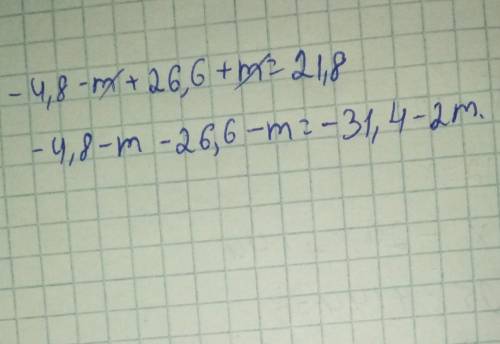 -4,8 -m + 26,6 + m = 21,8
-4,8 - m - 26,6 - m = -31,4 - 2m.